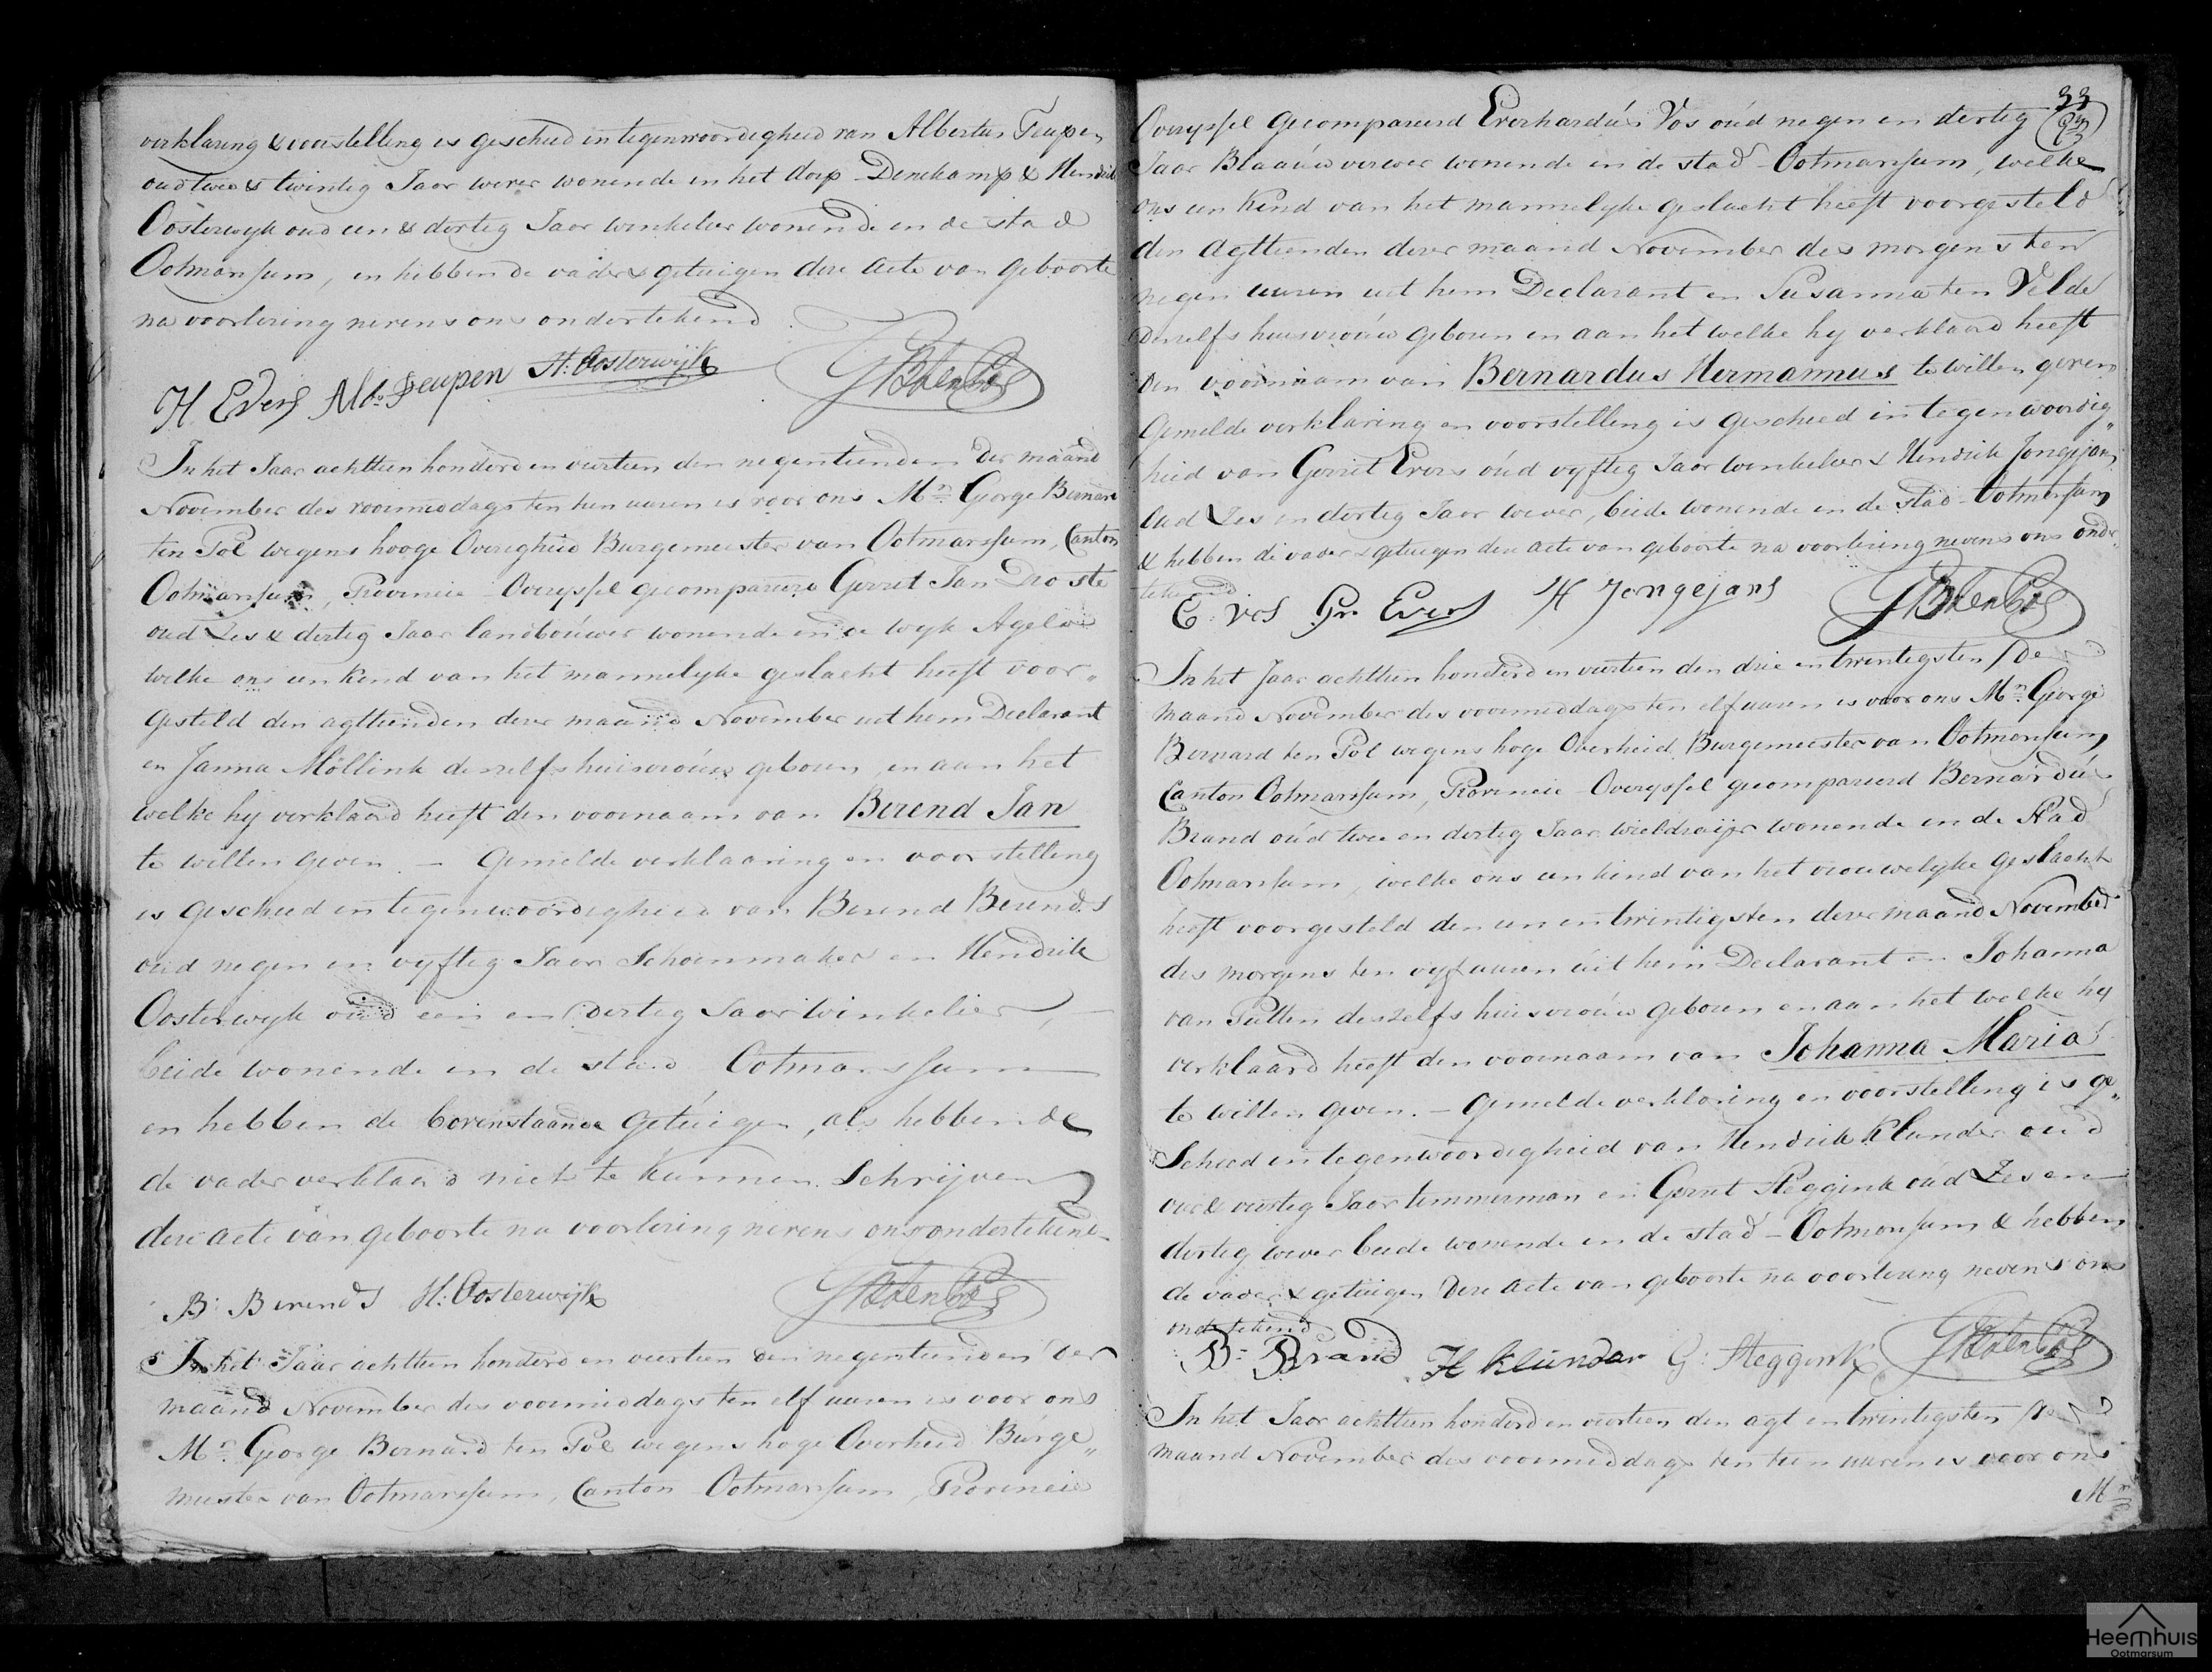 verklaring & voorstelling is geschied in tegenwoordigheid van Albertus Teupen
oud twee & twintig Jaar wever wonende in het dorp Denekamp & Hendrik
Oosterwyk oud een & dertig Jaar winkelier wonende in de stad
Ootmarssum, en hebben de vader & getuigen deze acte van geboorte
na voorlezing nevens ons ondertekend
H Evers Alb: Teupen H: Oosterwijk GBtenPol
In het Jaar achttien honderd en viertien den negentienden der maand
November des voormiddags ten tien uuren is voor ons Mr. George Bernard
ten Pol wegens hooge Overigheid Burgemeester van Ootmarssum, Canton
Ootmarssum, Provincie Overyssel gecompareerd Gerrit Jan Droste
oud Zes & dertig Jaar landbouwer wonende in de wyk Agelo
welke ons een kind van het mannelyke geslacht heeft voor„
gesteld den agttienden dezer maand November uit hem Declarant
en Janna Möllink deszelfs huisvrouw geboren, en aan het
welke hy verklaard heeft den voornaam van Berend Jan
te willen geven. – Gemelde verklaaring en voorstelling
is geschied in tegenwoordigheid van Berend Berends
oud negen en vyftig Jaar Schoenmaker en Hendrik
Oosterwyk oud een en dertig Jaar Winkelier, –
beide wonende in de stad Ootmarssum
en hebben de bovenstaande getuigen, als hebbende
de vader verklaard niet te kunnen Schrijven
deze acte van geboorte na voorlezing nevens ons ondertekend
B: Berends H: Oosterwijk GBtenPol
In het Jaar achttien honderd en viertien den negentienden der
maand November des voormiddags ten elf uuren is voor ons
Mr. George Bernard ten Pol wegens hoge Overheid Burge„
meester van Ootmarssum, Canton Ootmarssum, Provincie
33
Overyssel gecompareerd Everhardus Vos oud negen en dertig
Jaar Blaauwverwer wonende in de stad Ootmarssum, welke
ons een Kind van het mannelyke geslacht heeft voorgesteld
den agttienden dezer maand November des morgens ten
negen uuren uit hem Declarant en Susanna ten Velde
deszelfs huisvrouw geboren en aan het welke hy verklaard heeft
den voornaam van Bernardus Hermannus te willen geven
Gemelde verklaring en voorstelling is geschied in tegenwoordig„
heid van Gerrit Evers oud vyftig Jaar winkelier & Hendrik Jongejans
oud Zes en dertig Jaar wever, beide wonende in de stad Ootmarssum
& hebben de vader & getuigen deze acte van geboorte na voorlezing nevens ons onder„
tekend
E: Vos Gr. Evers H Jongejans GBtenPol
In het Jaar achttien honderd en viertien den drie en twintigsten der
maand November des voormiddags ten elf uuren is voor ons Mr. George
Bernard ten Pol wegens hoge Overheid Burgemeester van Ootmarssum,
Canton Ootmarssum, Provincie Overyssel gecompareerd Bernardus
Brand oud twee en dertig Jaar wieldraijer wonende in de Stad
Ootmarssum, welke ons een kind van het vrouwelyke geslacht
heeft voorgesteld den een en twintigsten dezer maand November
des morgens ten vyf uuren uit hem Declarant en Johanna
van Putten deszelfs huisvrouw geboren en aan het welke hy
verklaard heeft den voornaam van Johanna Maria
te willen geven. – Gemelde verklaring en voorstelling is ge„
Schied in tegenwoordigheid van Hendrik Klunder oud
veertig Jaar timmerman en Gerrit Steggink oud Zes en
dertig wever beide wonende in de stad Ootmarssum & hebben
de vader & getuigen deze acte van geboorte na voorlezing nevens ons
ondertekend
B: Brand H Klunder G: Steggink GBtenPol
In het Jaar achttien honderd en viertien den agt en twintigsten der
maand November des voormiddags ten tien uuren is voor ons
Mr.
Heemhuis
Ootmarsum